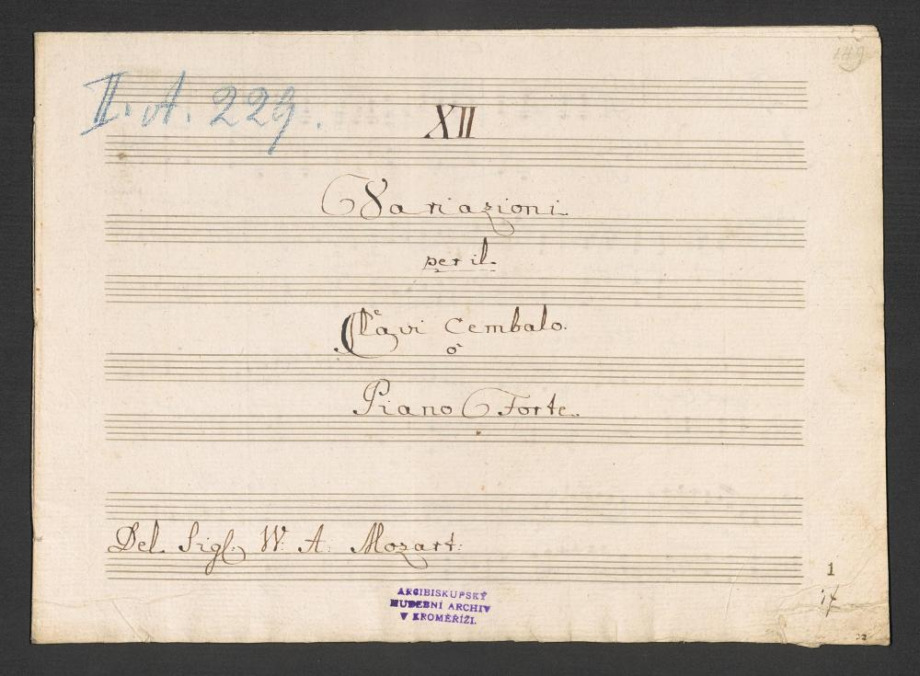 149
II. A. 229.
XII
Variazioni
per il
Clavi Cembalo.
ò
Piano Forte.
Del Sigl. W: A: Mozart:
1
17
ARCIBISKUPSKÝ
HUDEBNÍ ARCHIV
V KROMĚŘÍŽI.